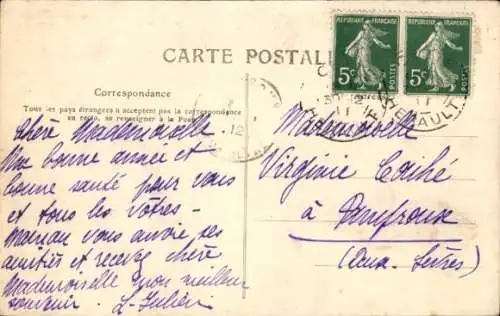 CARTE POSTALE
Correspondance
Tous les pays étrangers n'acceptent pas la correspondance
au recto, se renseigner à la Poste
REPUBLIQUE FRANÇAISE
5c
POSTES
REPUBLIQUE FRANÇAISE
5c
POSTES
HERAULT
12
Chère Mademoiselle.
Une bonne année et
bonne santé pour vous
et tous les vôtres -
Maman vous envoie ses
amitiés et recevez chère
Mademoiselle mon meilleur
souvenir. L. Julien
Mademoiselle
Virginie
à Pamproux
(Deux-Sèvres)